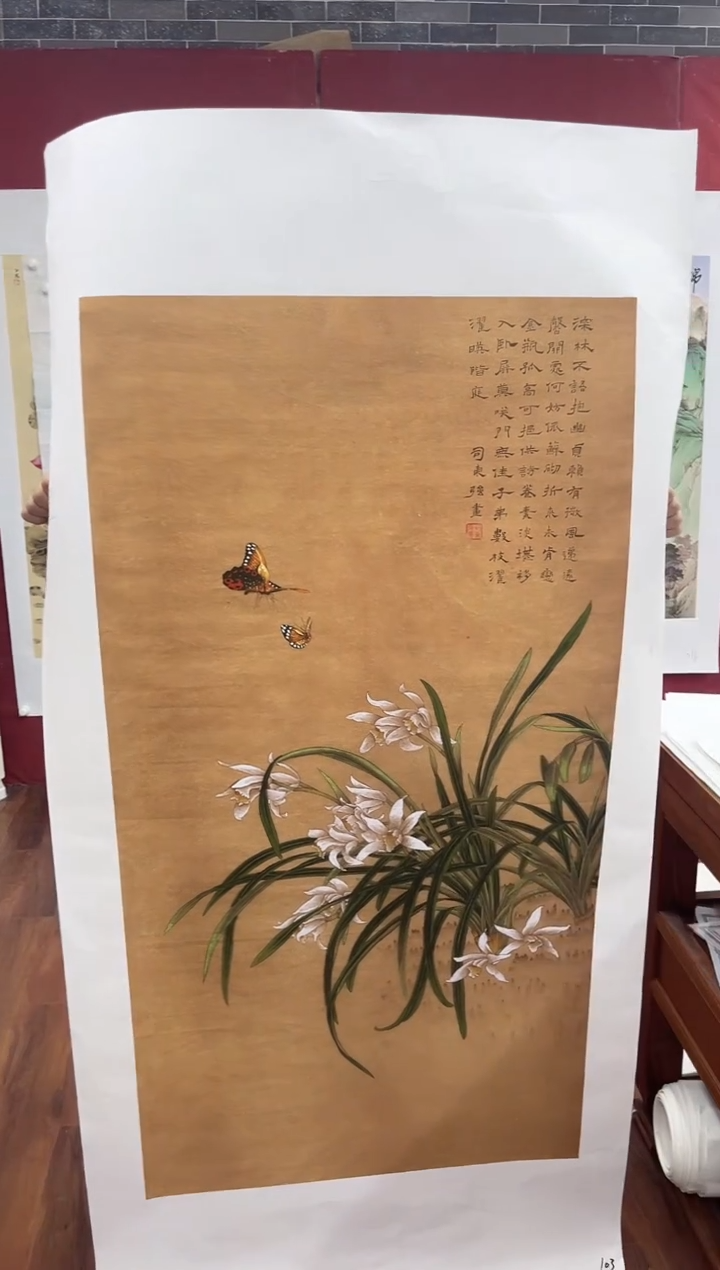 深林不語抱幽貞賴有微風遞遠
馨開處何妨依蘚砌折來未肯戀
金瓶孤高可挹供詩卷素淡堪移
入臥屏莫笑門無佳子弟數枝濯
濯映階庭
司東強畫
103